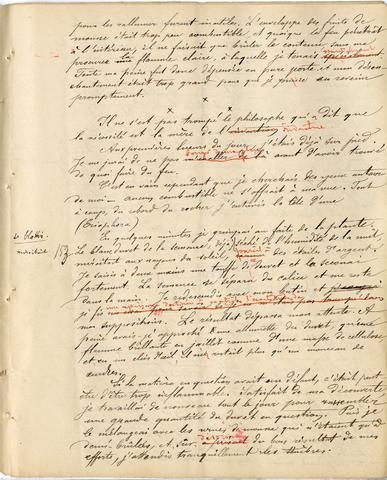 pour les rallumer furent inutiles. L'enveloppe des fruits de
mousse était trop peu combustible et quoique le feu pénétrât
à l'intérieur, il ne faisait que brûler le contenu sans me
procurer une flamme claire, à laquelle je tenais
Toute ma peine fut donc dépensée en pure perte et mon désap-
pointement était trop grand pour que je pusse au revenir
promptement.
x x x
Il ne s'est pas trompé le philosophe qui a dit que
la nécessité est la mère de l'invention
Aux premières lueurs du jour, j'étais déjà sur pied.
Je me jurai de ne pas avant d'avoir trouvé
de quoi faire du feu.
C'est en vain cependant que je cherchais des yeux autour
de moi – aucun combustible ne s'offrait à ma vue. Tout
à coup, du bord du rocher j'aperçus la tête d'une
(Eriophore)
En quelques minutes je grimpai au faîte de la plante.
Le blanc duvet de la semence, déjà séché de l'humidité de la nuit
miroitait aux rayons du soleil, des étoiles d'argent.
153
Je saisis à deux mains une touffe de duvet et la secouai
fortement. La semence se sépara du calice et me resta
dans la main. Je redescendis mon butin et
je fis
mes suppositions. Le résultat dépassa mon attente. A
peine avais-je approché une allumette du duvet, qu'une
flamme brillante en jaillit comme d'une masse de cellulose
et en un clin d'œil il ne restait plus qu'un monceau de
cendres.
Si la matière en question avait un défaut, c'était peut
être d'être trop inflammable. Satisfait de ma découverte
je travaillai de nouveau tout le jour pour rassembler
une grande quantité de duvet en question. Puis je
le mélangeai avec les urnes de mousse qui n'étaient qu'à
demi-brûlées, et, sûr du bon résultat de mes
efforts, j'attendis tranquillement les ténèbres.